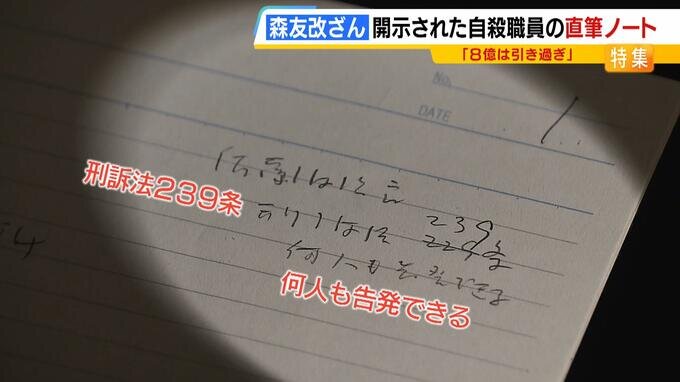 森友改ざん 開示された自殺職員の直筆ノート
「8億は引き過ぎ」 特集
No.
DATE
1
刑訴法239条
239
229条
何人も告発できる
何人も告発できる
4